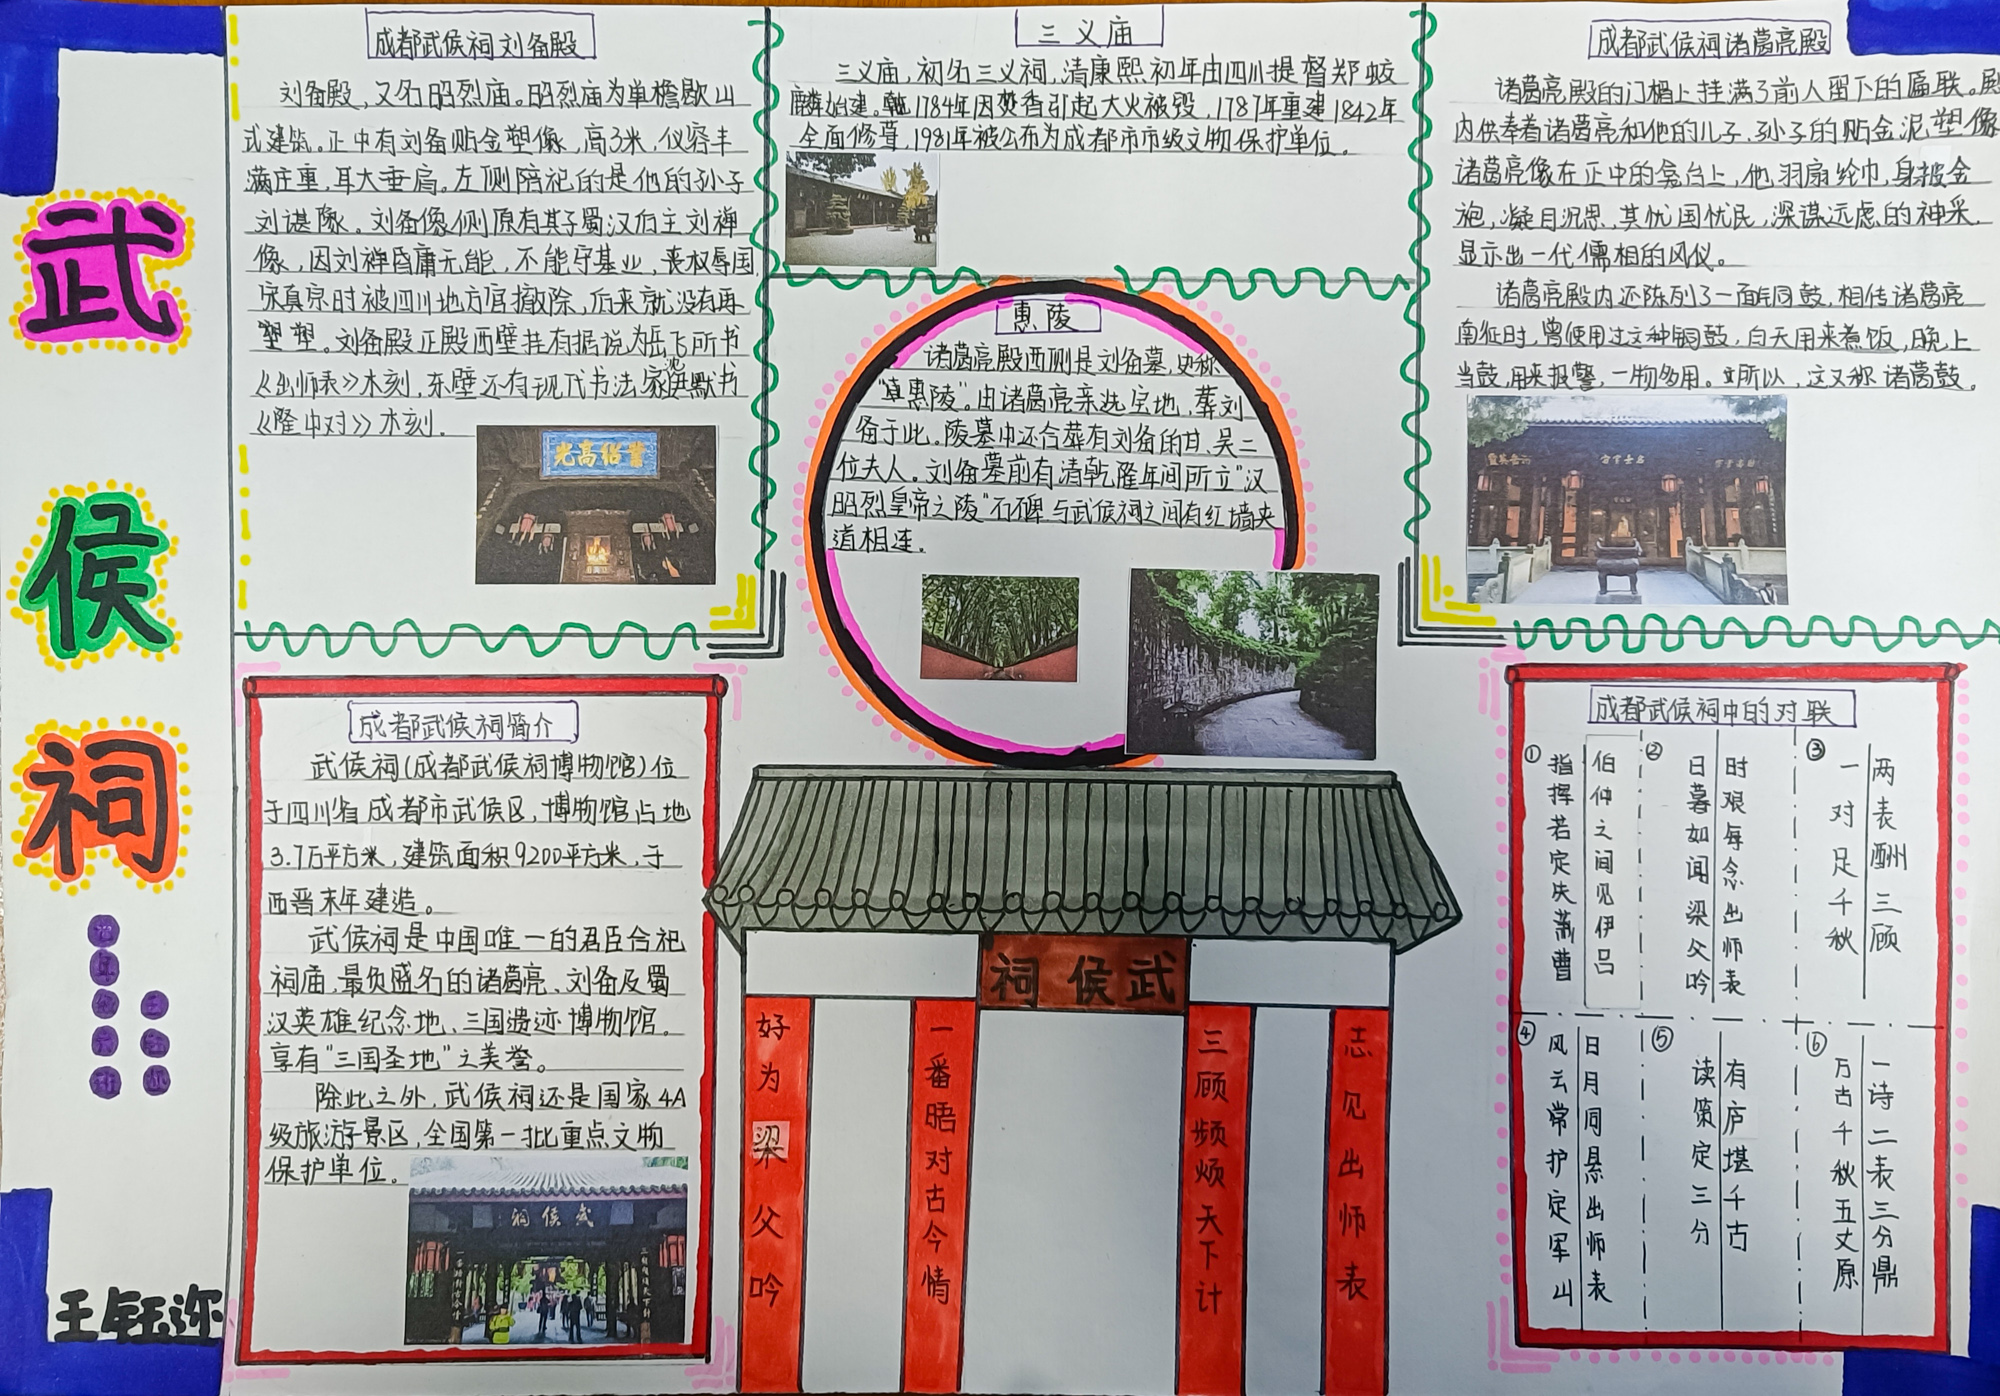 武
侯
祠
王钰弥
成都武侯祠刘备殿
刘备殿,又名昭烈庙。昭烈庙为单檐歇山
式建筑。正中有刘备贴金塑像,高3米,仪容丰
满庄重,耳大垂肩。左侧陪祀的是他的孙子
刘谌像。刘备像侧原有其子蜀汉后主刘禅
像,因刘禅昏庸无能,不能守基业,丧权辱国,
宋真宗时被四川地方官撤除,后来就没有再
塑。刘备殿正殿西壁挂有据说为岳飞所书
《出师表》木刻,东壁还有现代书法家沈尹默书
《隆中对》木刻.
業紹高光
三义庙
三义庙,初名三义祠,清康熙初年由四川提督郑蛟
麟始建。1784年因焚香引起大火被毁,1787年重建1842年
全面修葺,1981年被公布为成都市市级文物保护单位。
成都武侯祠诸葛亮殿
诸葛亮殿的门楣上挂满了前人留下的匾联。殿
内供奉着诸葛亮和他的儿子、孙子的贴金泥塑像
诸葛亮像在正中的龛台上,他羽扇纶巾,身披金
袍,凝目沉思,其忧国忧民,深谋远虑的神采,
显示出一代儒相的风仪。
诸葛亮殿内还陈列了一面铜鼓,相传诸葛亮
南征时,曾使用过这种铜鼓,白天用来煮饭,晚上
当鼓,用来报警,一物多用。所以,这又称诸葛鼓。
惠陵
诸葛亮殿西侧是刘备墓,史称
“惠陵”。由诸葛亮亲选宝地,葬刘
备于此。陵墓中还合葬有刘备的甘、吴二
位夫人。刘备墓前有清乾隆年间所立“汉
昭烈皇帝之陵”石碑与武侯祠之间有红墙夹
道相连。
成都武侯祠简介
武侯祠(成都武侯祠博物馆)位
于四川省成都市武侯区,博物馆占地
3.7万平方米,建筑面积9200平方米,于
西晋末年建造。
武侯祠是中国唯一的君臣合祀
祠庙,最负盛名的诸葛亮、刘备及蜀
汉英雄纪念地、三国遗迹博物馆。
享有“三国圣地”之美誉。
除此之外,武侯祠还是国家4A
级旅游景区,全国第一批重点文物
保护单位。
武侯祠
武侯祠
好为梁父吟
一番晤对古今情
三顾频烦天下计
志见出师表
成都武侯祠中的对联
①
伯仲之间见伊吕
指挥若定失萧曹
②
时艰每念出师表
日暮如闻梁父吟
③
两表酬三顾
一对足千秋
④
日月同悬出师表
风云常护定军山
⑤
有庐堪千古
读策定三分
⑥
一诗二表三分鼎
万古千秋五丈原